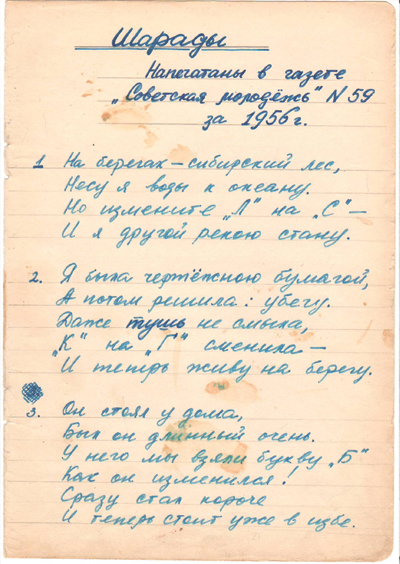 Шарады
Напечатаны в газете
„Советская молодёжь" N 59
за 1956 г.
1. На берегах – сибирский лес,
Несу я воды к океану.
Но измените „Л" на „С" –
И я другой рекою стану.
2. Я была чертёжною бумагой,
А потом решила: убегу.
Даже тушь не смыла,
„К" на „Г" сменила –
И теперь живу на берегу.
3. Он стоял у дома,
Был он длинный очень.
У него мы взяли букву „Б"
Как он изменился!
Сразу стал короче
И теперь стоит уже в избе.